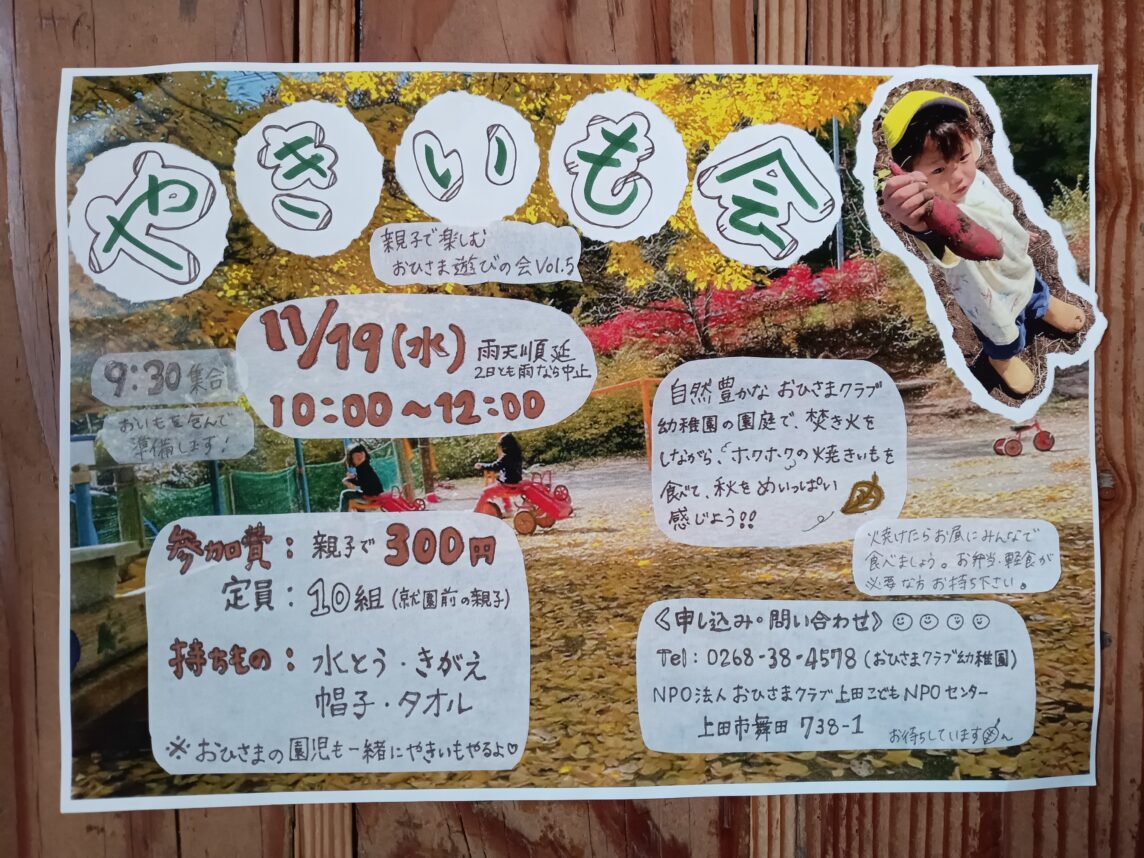 やきいも会
親子で楽しむ
おひさま遊びの会Vol.5
11/19(水)
雨天順延
2日とも雨なら中止
10:00〜12:00
9:30集合
おいもを包んで
準備します!
自然豊かな おひさまクラブ
幼稚園の園庭で、焚き火を
しながら、ホクホクの焼きいもを
食べて、秋をめいっぱい
感じよう!!
焼けたらお昼にみんなで
食べましょう。お弁当・軽食が
必要な方お持ち下さい。
参加費:親子で300円
定員:10組(就園前の親子)
持ちもの:水とう・きがえ
帽子・タオル
※おひさまの園児も一緒にやきいもやるよ♡
《申し込み・問い合わせ》☺☺☺☺
Tel:0268-38-4578(おひさまクラブ幼稚園)
NPO法人おひさまクラブ上田こどもNPOセンター
上田市舞田 738-1
お待ちしています